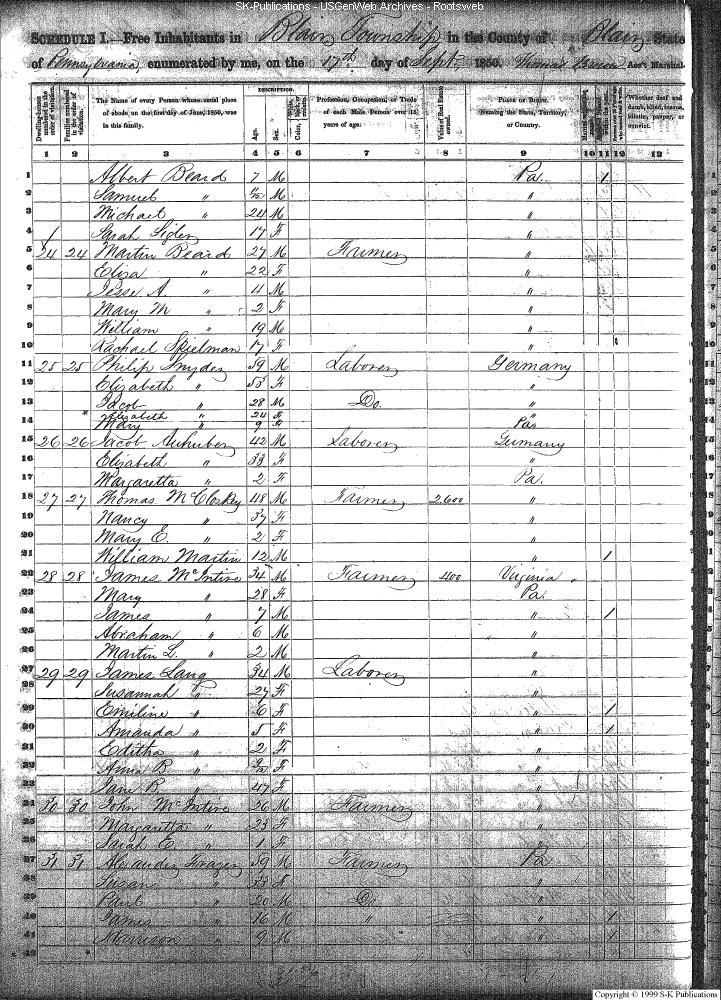 SK-Publications - USGenWeb Archives - Rootsweb
SCHEDULE I.—Free Inhabitants in Blair Township in the County of Blair State
of Pennsylvania, enumerated by me, on the 17th day of Sept. 1850. Thomas Ass't Marshal.
Dwelling-houses numbered in the order of visitation. Families numbered in the order of visitation. The Name of every Person whose usual place of abode on the first day of June, 1850, was in this family. DESCRIPTION. Age. Sex. Color, Profession, Occupation, or Trade of each Male Person over 15 years of age. Value of Real Estate owned. PLACE OF BIRTH. Naming the State, Territory, or Country. Whether deaf and dumb, blind, insane, idiotic, pauper, or convict.
1 2 3 4 5 6 7 8 9 10 11 12 13
1 Albert Beard 7 M Pa. 1
2 Samuel " M "
3 Michael " 24 M "
4 Sarah 17 F "
5 24 24 Martin Beard 27 M Farmer "
6 Eliza " 22 F "
7 Jesse A. " 4 M "
8 Mary M " 2 F "
9 William " 19 M "
10 Rachael Spielman 17 F "
11 25 25 Philip Snyder 59 M Laborer Germany
12 Elizabeth " 53 F "
13 Jacob " 28 M Do. "
Elizabeth " 24 F "
14 Mary " 9 F Pa.
15 26 26 Jacob 42 M Laborer Germany
16 Elizabeth " 33 F "
17 Margaretta " 2 F Pa.
18 27 27 Thomas McCloskey 48 M Farmer 2,600 "
19 Nancy " 37 F "
20 Mary E. " 2 F "
21 William Martin 12 M " 1
22 28 28 James McIntire 34 M Farmer 400 Virginia
23 Mary " 28 F Pa.
24 James " 7 M " 1
25 Abraham " 6 M "
26 Martin L. " 2 M "
27 29 29 James Lang 34 M Laborer "
28 Susannah " 27 F "
29 Emiline " 6 F " 1
30 Amanda " 5 F " 1
31 Editha " 2 F "
32 Anna B. " F "
33 Jane B. " 47 F "
34 30 30 John McIntire 26 M Farmer "
35 Margaretta " 23 F "
36 Sarah E. " 1 F "
37 31 31 Alexander Frazer 59 M Farmer Pa
38 Susan " 33 F "
39 Paul " 20 M Do. "
40 James " 16 M " " 1
41 Morrison " 9 M " 1
42
Copyright © 1999 S-K Publications